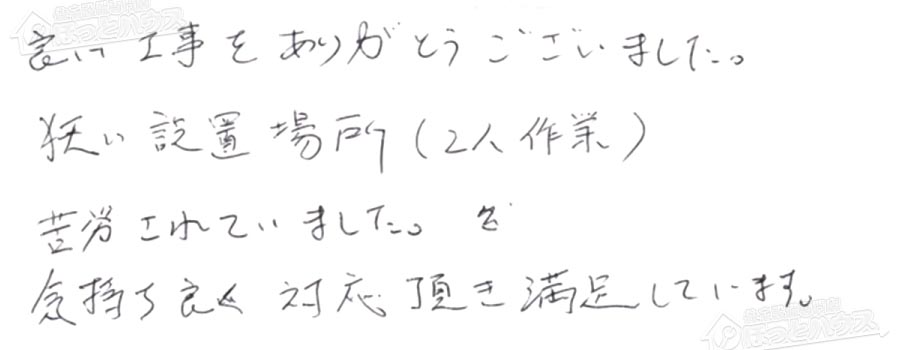 良い工事をありがとうございました。
狭い設置場所(2人作業)
苦労されていました。が
気持ち良く対応頂き満足しています。
ほっとハウス
ほっとハウス